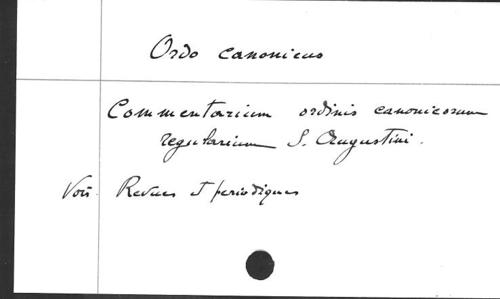 Ordo canonicus
Commentarium ordinis canonicorum
regularium S. Augustini.
Voir Revues et périodiques